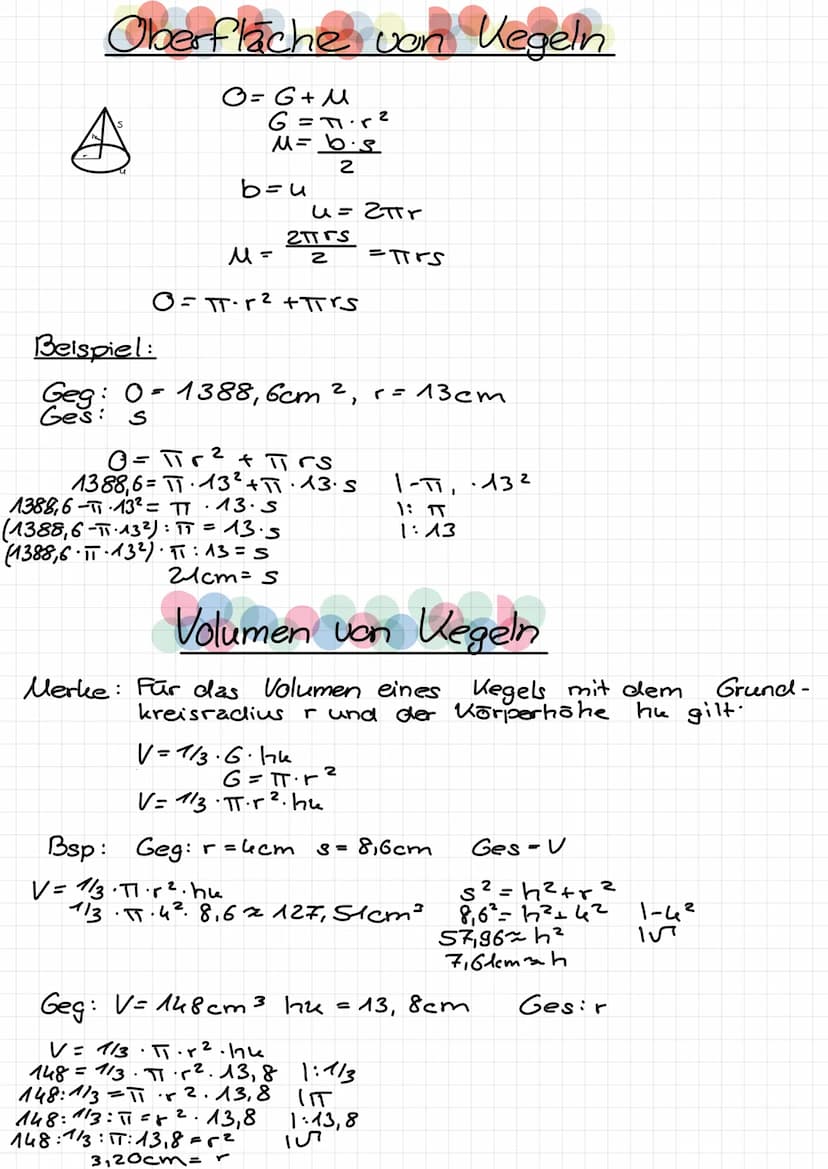 Oberfläche von Kegeln
O = G + M
G = π · r²
M = b · s / 2
s
u
b = u
u = 2πr
M = 2πrs / 2 = πrs
O = π · r² + πrs
Beispiel:
Geg: O = 1388,6cm², r = 13cm
Ges: s
O = πr² + πrs
1388,6 = π · 13² + π · 13 · s |-π, · 13²
1388,6 - π · 13² = π · 13 · s |: π
(1388,6 - π · 13²) : π = 13 · s |: 13
(1388,6 · π · 13²) · π : 13 = s
21cm = s
Volumen von Kegeln
Merke: Für das Volumen eines Kegels mit dem Grund-
kreisradius r und der Körperhöhe hk gilt:
V = 1/3 · G · hk
G = π · r²
V = 1/3 · π · r² · hk
Bsp: Geg: r = 4cm s = 8,6cm Ges = V
V = 1/3 · π · r² · hk s² = h² + r²
1/3 · π · 4² · 8,6 ≈ 127,51cm³ 8,6² = h² + 4² |-4²
57,96 ≈ h² |√
7,61cm ≈ h
Geg: V = 148cm³ hk = 13,8cm Ges: r
V = 1/3 · π · r² · hk
148 = 1/3 · π · r² · 13,8 |: 1/3
148 : 1/3 = π · r² · 13,8 |π
148 : 1/3 : π = r² · 13,8 |: 13,8
148 : 1/3 : π : 13,8 = r² |√
3,20cm = r